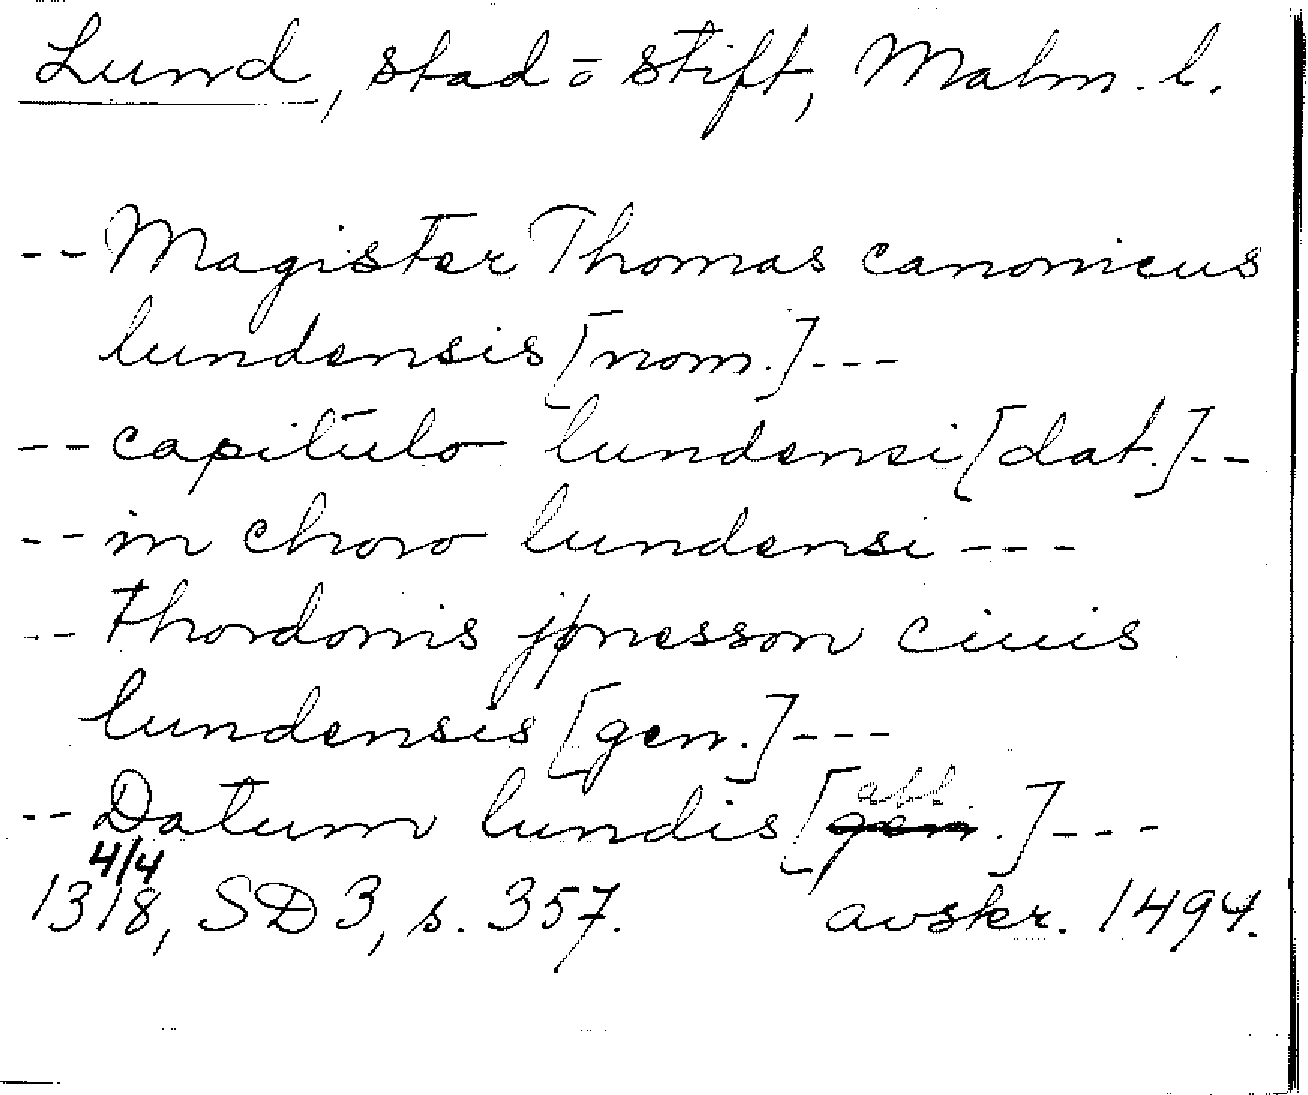 Lund, stad o stift, Malm. l.
-- Magister Thomas canonicus
lundensis [nom.] ---
-- capitulo lundensi [dat.] --
-- in choro lundensi ---
-- thordonis jønesson ciuis
lundensis [gen.] ---
-- Datum lundis [abl.] ---
4/4
1318, SD 3, s. 357. avskr. 1494.